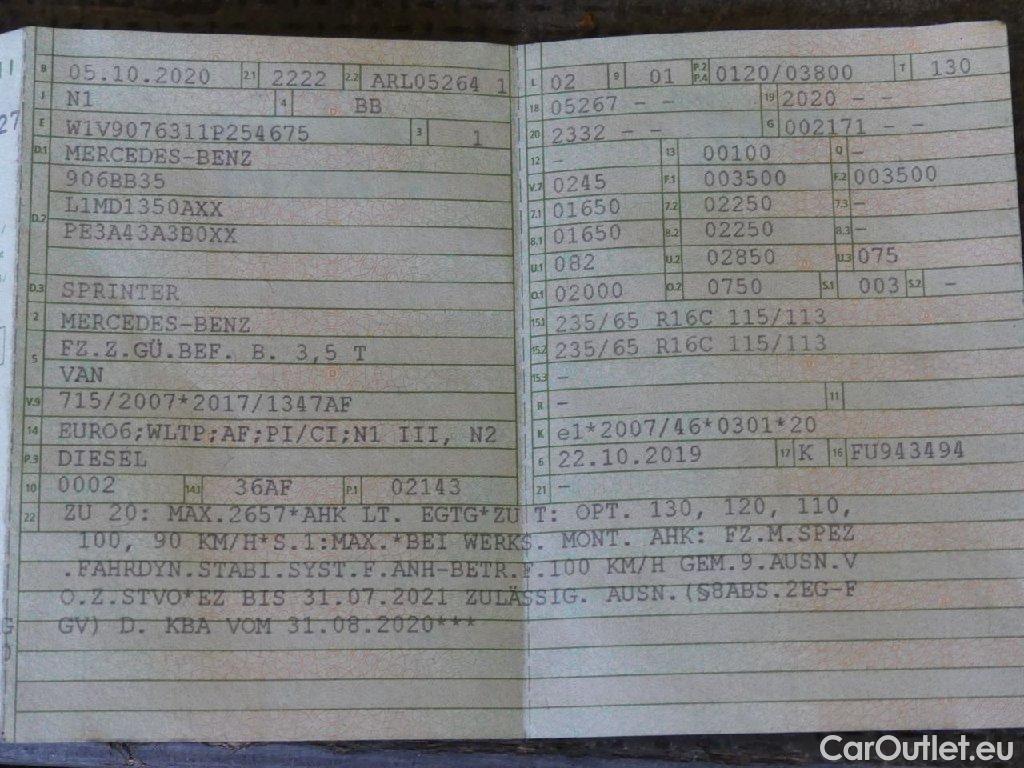 B 05.10.2020 2.1 2222 2.2 ARL05264 1
J N1 4 BB
E W1V9076311P254675 3 1
D.1 MERCEDES-BENZ
906BB35
D.2 L1MD1350AXX
PE3A43A3B0XX
D.3 SPRINTER
2 MERCEDES-BENZ
5 FZ.Z.GÜ.BEF. B. 3,5 T
VAN
V.9 715/2007*2017/1347AF
14 EURO6;WLTP;AF;PI/CI;N1 III, N2
P.3 DIESEL
10 0002 14.1 36AF P.1 02143
L 02 9 01 P.2 P.4 0120/03800 T 130
18 05267 - - 19 2020 - -
20 2332 - - G 002171 - -
12 - 13 00100 Q -
V.7 0245 F.1 003500 F.2 003500
7.1 01650 7.2 02250 7.3 -
8.1 01650 8.2 02250 8.3 -
U.1 082 U.2 02850 U.3 075
O.1 02000 O.2 0750 S.1 003 S.2 -
15.1 235/65 R16C 115/113
15.2 235/65 R16C 115/113
15.3 -
R - 11
K e1*2007/46*0301*20
6 22.10.2019 17 K 16 FU943494
21 -
22 ZU 20: MAX.2657*AHK LT. EGTG*ZU T: OPT. 130, 120, 110,
100, 90 KM/H*S.1:MAX.*BEI WERKS. MONT. AHK: FZ.M.SPEZ
.FAHRDYN.STABI.SYST.F.ANH-BETR.F.100 KM/H GEM.9.AUSN.V
O.Z.STVO*EZ BIS 31.07.2021 ZULÄSSIG. AUSN.(§8ABS.2EG-F
GV) D. KBA VOM 31.08.2020***
CarOutlet.eu